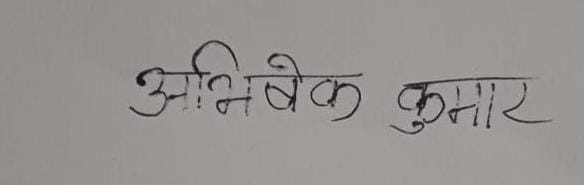 अभिषेक कुमार